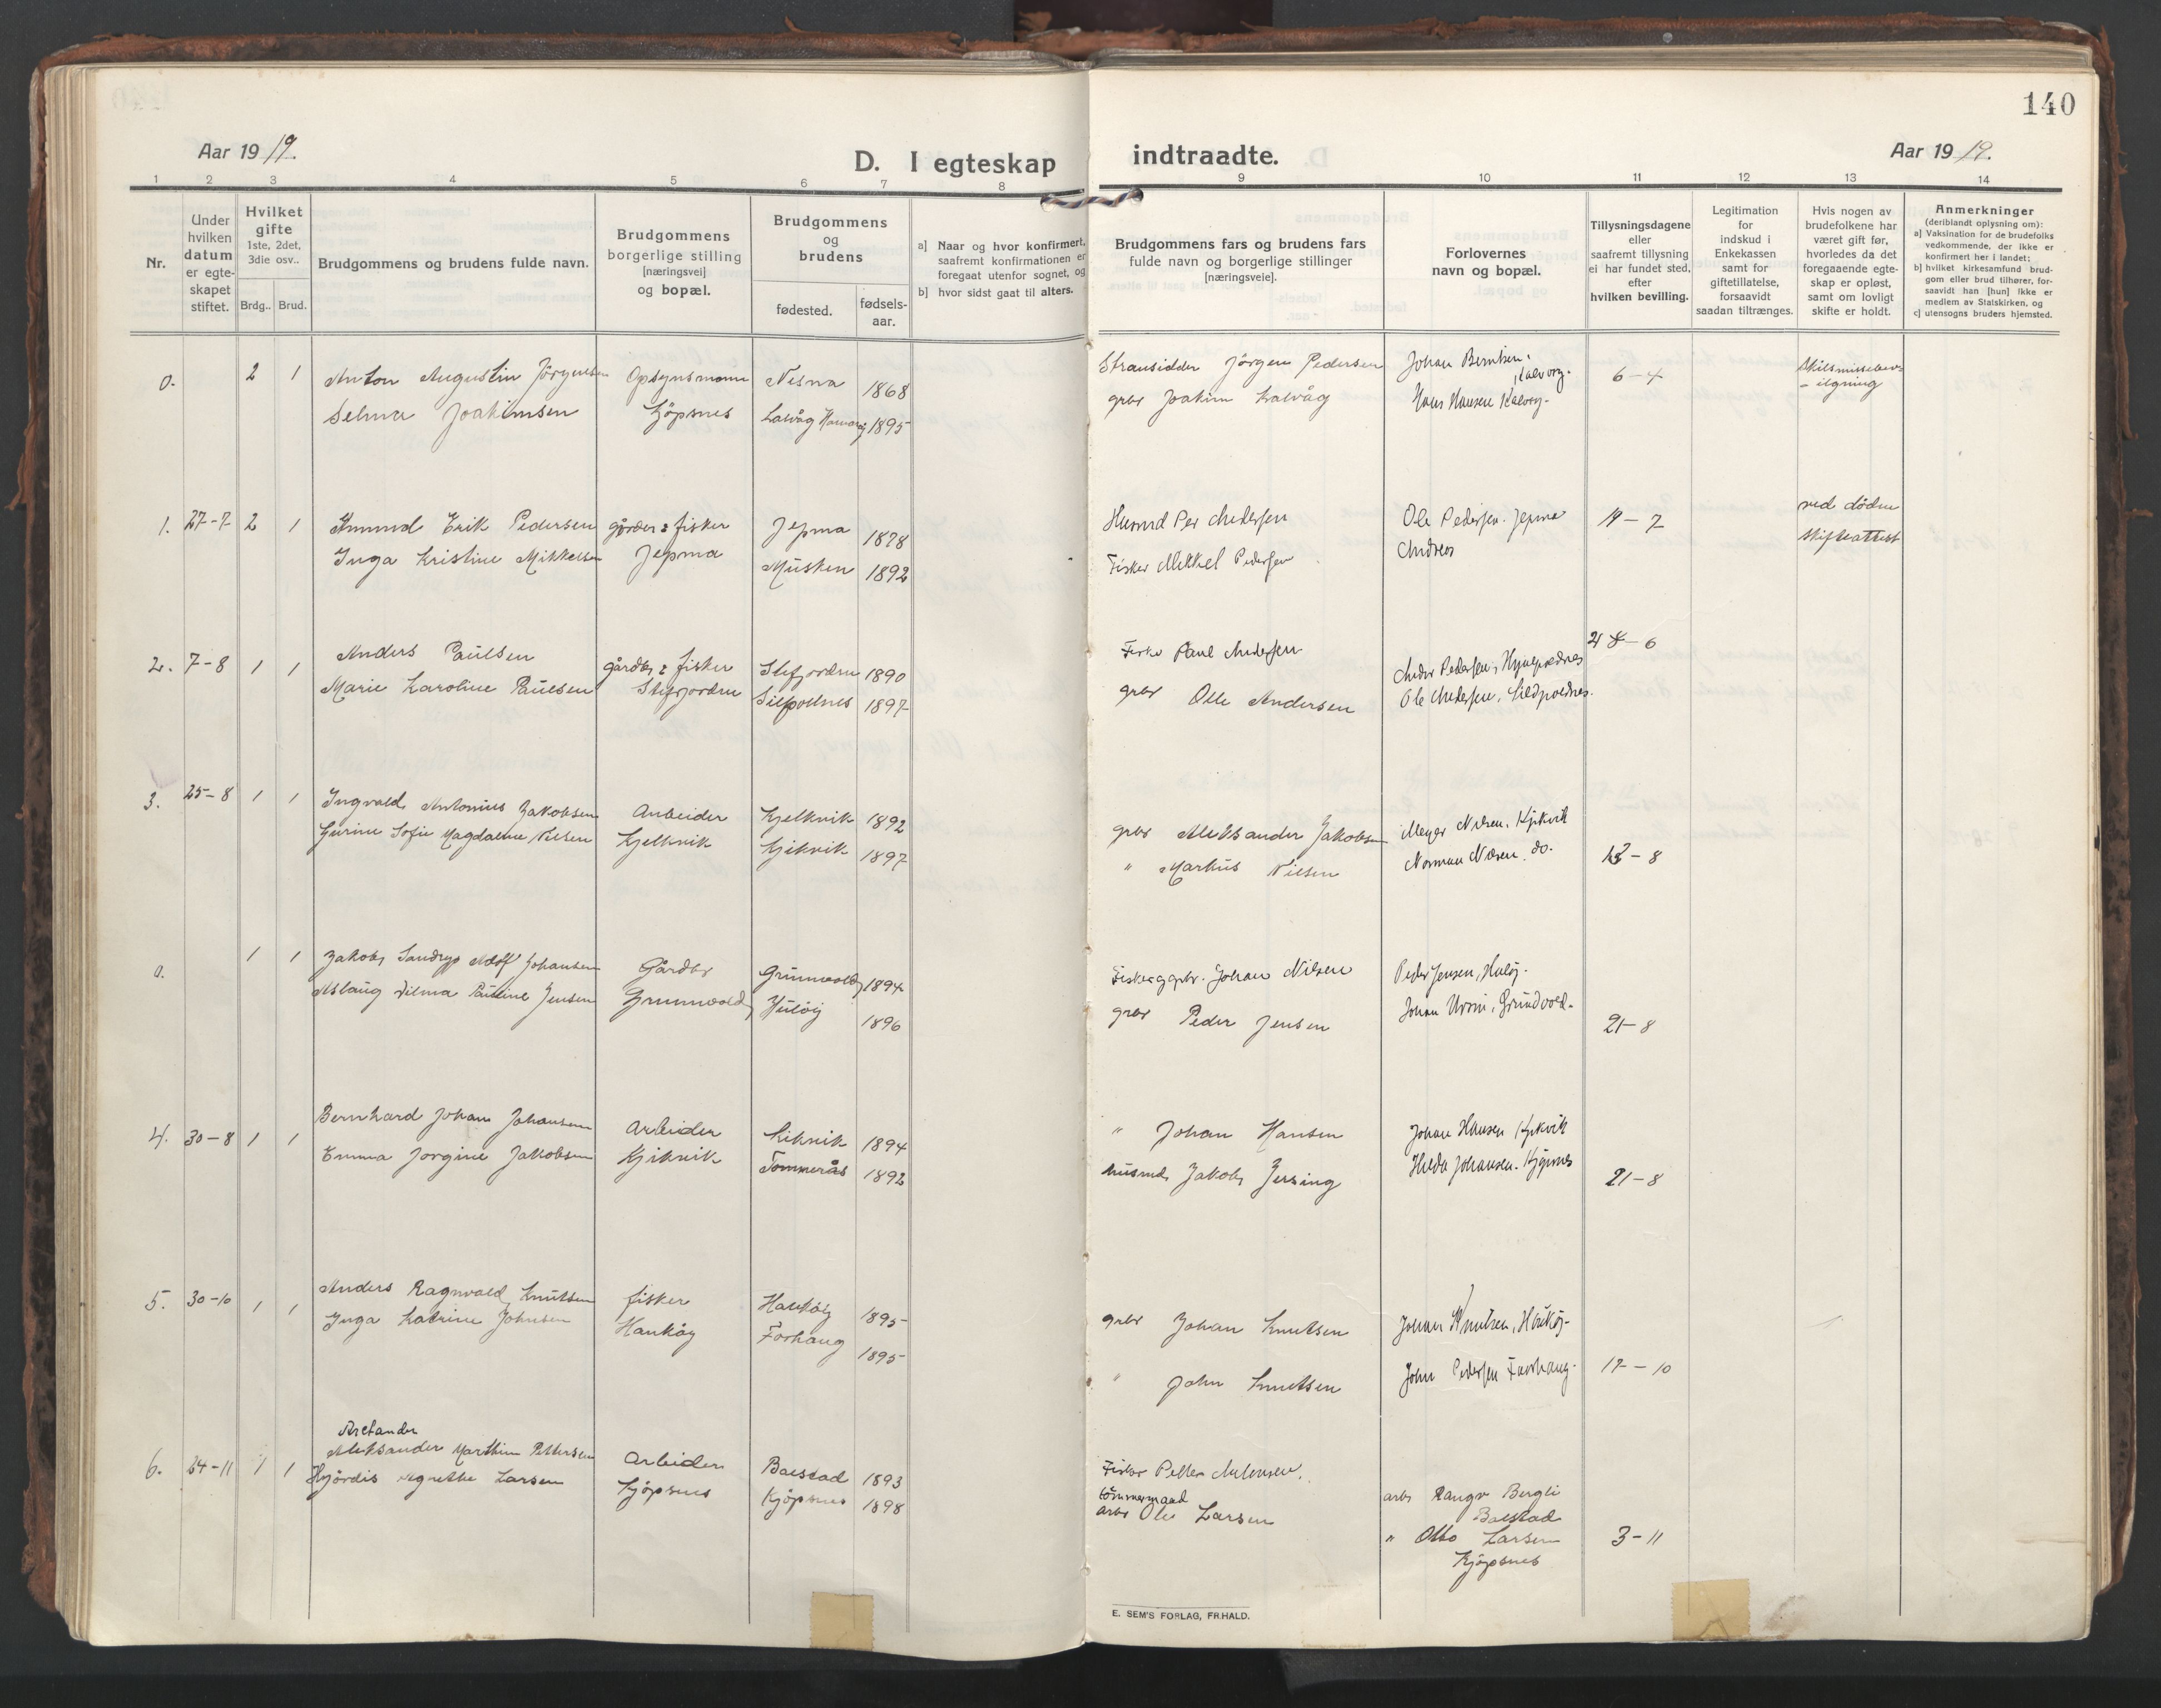 140
Aar 19 19.
D. I egteskap
indtraadte.
Aar 19 19.
1 2 3 4 5 6 7 8 9 10 11 12 13 14
Nr.
Under
hvilken
datum
er egte-
skapet
stiftet.
Hvilket
gifte
1ste, 2det,
3die osv..
Brdg.. Brud.
Brudgommens og brudens fulde navn.
Brudgommens
borgerlige stilling
[næringsvei]
og bopæl.
Brudgommens
og
brudens
fødested.
fødsels-
aar.
a] Naar og hvor konfirmert,
saafremt konfirmationen er
foregaat utenfor sognet, og
b] hvor sidst gaat til alters.
Brudgommens fars og brudens fars
fulde navn og borgerlige stillinger
[næringsveie].
Forlovernes
navn og bopæl.
Tillysningsdagene
eller
saafremt tillysning
ei har fundet sted,
efter
hvilken bevilling.
Legitimation
for
indskud i
Enkekassen
samt for
giftetillatelse,
forsaavidt
saadan tiltrænges.
Hvis nogen av
brudefolkene har
været gift før,
hvorledes da det
foregaaende egte-
skap er opløst,
samt om lovligt
skifte er holdt.
Anmerkninger
(deriblandt oplysning om):
a] Vaksination for de brudefolks
vedkommende, der ikke er
konfirmert her i landet;
b] hvilket kirkesamfund brud-
gom eller brud tilhører, for-
saavidt han [hun] ikke er
medlem av Statskirken, og
c] utensogns bruders hjemsted.
0. 2 1 Anton Augustin Jörgensen Opsynsmann Nesna 1868 Jörgen Pedersen Johan Berntsen, 6-4
Selma Joakimsen Kjöpsnes 1895 grbr Joakim Kalvåg Hans Hansen
1. 27-7 2 1 Amund Erik Pedersen fisker Jepma 1878 Husmd Per Andersen Ole Pedersen. Jepma 19-7 ved döden
Inga Kristine Mikkelsen Jepma Musken 1892 Fisker Mikkel Pedersen Andreas skifteattest
2. 7-8 1 1 Anders Paulsen gårdbr & fisker Stefjorden 1890 Paul Andersen 8-6
Marie Karoline Paulsen Stefjorden 1897 grbr Olle Andersen Ole Andersen,
3. 25-8 1 1 Ingvald Antonius Jakobsen Arbeider Kjelkvik 1892 grbr Aleksander Jakobsen Meyer Nilsen, Kjikvik
Sofie Magdalene Nilsen Kjelkvik Kjikvik 1897 " Markus Nilsen Norman Nilsen, do. -8
0. 1 1 Jakob Adolf Johansen Gårdbr 1894 Johan Nilsen Peder Jensen, Hulöj.
Aslaug Vilma Pauline Jensen Hulöj 1896 grbr Peder Jensen Johan 21-8
4. 30-8 1 1 Bernhard Johan Johansen Arbeider Kikvik 1894 " Johan Hansen Johan Hansen Kjikvik
Emma Jorgine Jakobsen Kjikvik Tommerås 1892 husmd. Jakob Hilda Johansen. Kjöpsnes 21-8
5. 30-10 1 1 Anders Ragnvald Knutsen fisker Haukøy 1895 grbr Johan Knutsen Johan Knutsen,
Inga Katrine Johnsen Haukøy Forhaug 1895 " John Knutsen John Pedersen 17-10
6. 24-11 1 1 Aleksander Marthin Pettersen Arbeider Baestad 1893 Fisker Petter
Hjördis Larsen Kjöpsnes Kjöpsnes 1898 tömmermand arbr Bergli
arbr Ole Larsen Baestad
" Otto Larsen 3-11
Kjöpsnes
E. SEM'S FORLAG, FR.HALD.